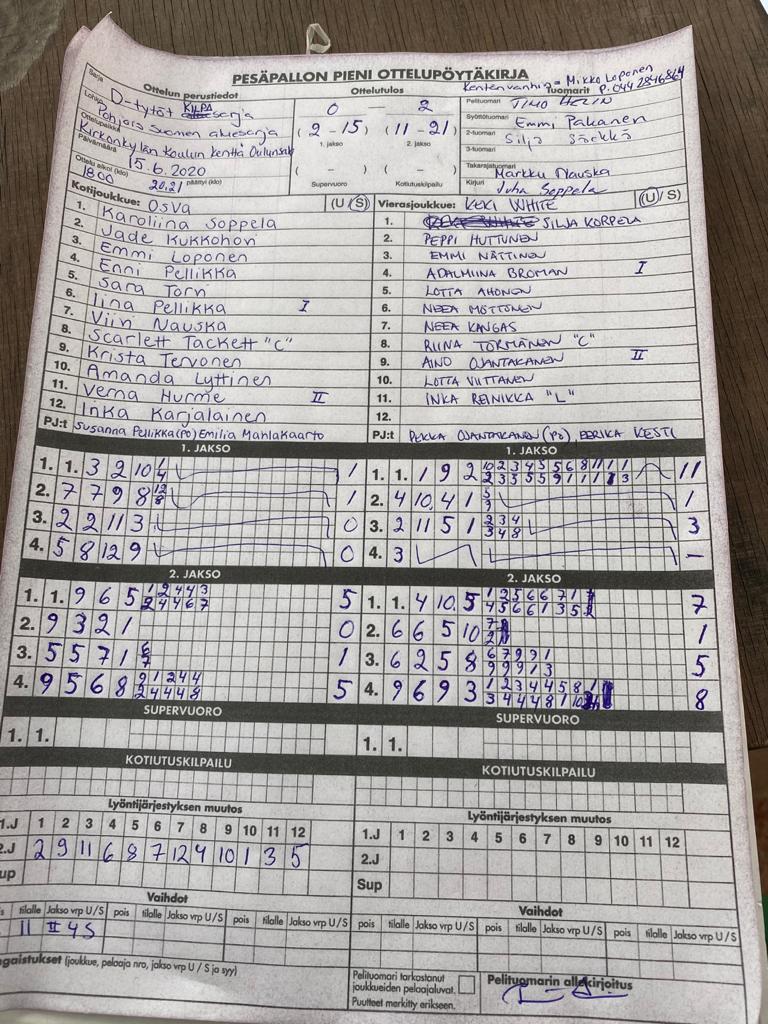 PESÄPALLON PIENI OTTELUPÖYTÄKIRJA
Kentänvanhin = Mikko Loponen
P. 044 2846864
Ottelun perustiedot
Ottelutulos
Tuomarit
Sarja D-tytöt KILPA
Lohko Pohjois Suomen aluesarja
Ottelupaikka Kirkonkylän Koulun kenttä Oulunsalo
Päivämäärä 15.6.2020
Ottelu alkoi (klo) 1800 20.21 päättyi (klo)
0 – 2
(2-15) (11-21)
1. jakso 2. jakso
( - ) ( - )
Supervuoro Kotiutuskilpailu
Pelituomari TIMO
Syöttötuomari Emmi Pakanen
2-tuomari Silja
3-tuomari
Takarajatuomari Markku Nauska
Kirjuri Juha Soppela
Kotijoukkue: OsVa (U/S)
1. Karoliina Soppela
2. Jade Kukkohon
3. Emmi Loponen
4. Enni Pellikka
5. Sara Torn
6. Iina Pellikka I
7. Viin Nauska
8. Scarlett Tackett "C"
9. Krista Tervonen
10. Amanda Lyttinen
11. Verna Hurme II
12. Inka Karjalainen
PJ:t Susanna Pellikka (PO) Emilia Mahlakaarto
Vierasjoukkue: KEKI WHITE (U/S)
1. SILJA KORPELA
2. PEPPI HUTTUNEN
3. EMMI NÄTTINEN
4. ADALMIINA BROMAN I
5. LOTTA AHONEN
6. NEEA MÖTTÖNEN
7. NEEA KANGAS
8. RIINA TORMÄNEN "C"
9. AINO OJANTAKANEN II
10. LOTTA VIITTANEN
11. INKA REINIKKA "L"
12.
PJ:t PEKKA OJANTAKANEN (PO), EERIKA KESTI
1. JAKSO
1. 1. 3 2 10 4 4 1
2. 7 7 9 8 12 8 1
3. 2 2 11 3 0
4. 5 8 12 9 0
1. JAKSO
1. 1. 1 9 2 11
2. 4 10 4 1 5 9 1
3. 2 11 5 1 2 3 4 3 4 8 3
4. 3 –
2. JAKSO
1. 1. 9 6 5 1 2 4 4 3 2 4 4 6 7 5
2. 9 3 2 1 0
3. 5 5 7 1 6 7 1
4. 9 5 6 8 9 1 2 4 4 2 4 4 4 8 5
2. JAKSO
1. 1. 4 10 5 7
2. 6 6 5 10 1
3. 6 2 5 8 6 7 9 9 1 9 9 9 1 3 5
4. 9 6 9 3 8
SUPERVUORO
1. 1.
SUPERVUORO
1. 1.
KOTIUTUSKILPAILU
KOTIUTUSKILPAILU
Lyöntijärjestyksen muutos
1.J 1 2 3 4 5 6 7 8 9 10 11 12
2.J 2 9 11 6 8 7 12 4 10 1 3 5
Sup
Lyöntijärjestyksen muutos
1.J 1 2 3 4 5 6 7 8 9 10 11 12
2.J
Sup
Vaihdot
tilalle Jakso vrp U/S pois tilalle Jakso vrp U/S pois tilalle Jakso vrp U/S
11 II 4S
Vaihdot
pois tilalle Jakso vrp U/S pois tilalle Jakso vrp U/S pois tilalle Jakso vrp U/S
(joukkue, pelaaja nro, jakso vrp U / S ja syy)
Pelituomari tarkastanut
joukkueiden pelaajaluvat.
Puutteet merkitty erikseen.
Pelituomarin allekirjoitus